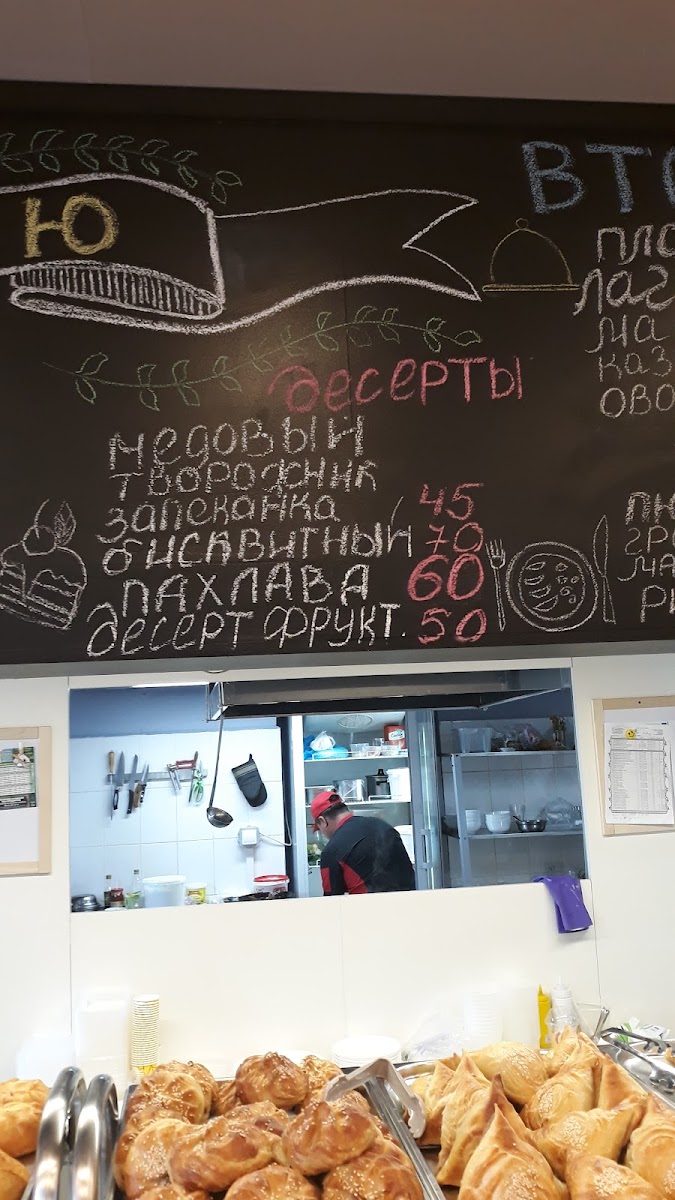 Ю
десерты
медовый
творожник
запеканка 45
бисквитный 70
пахлава 60
десерт фрукт. 50
ВТО
пло
лаг
ма
каз
ово